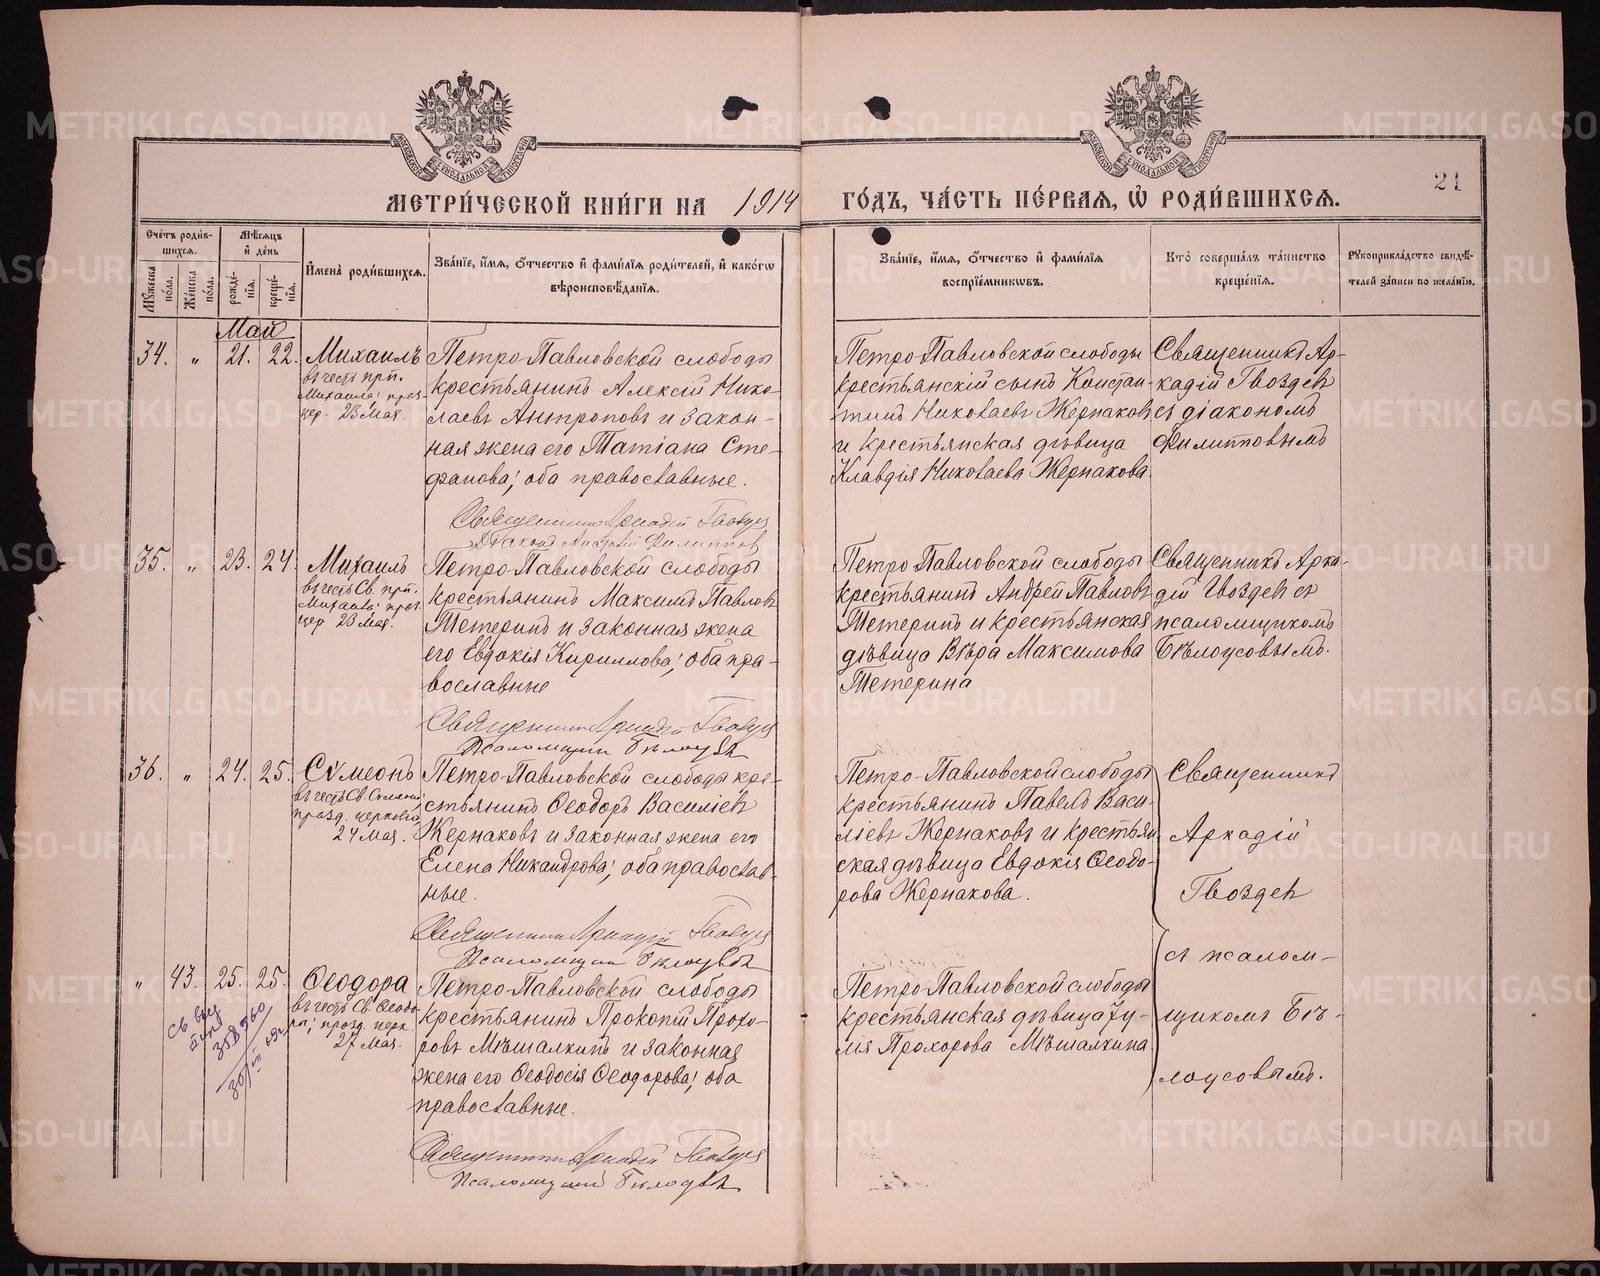 МЕТРИ́ЧЕСКОЙ КНИ́ГИ НА 1914 ГО́ДЪ, ЧА́СТЬ ПЕ́РВАЯ, Ѡ РОДИ́ВШИХСЯ.
21
МОСКОВСКОЙ СѴНОДАЛЬНОЙ ТИПОГРАФІИ
МОСКОВСКОЙ СѴНОДАЛЬНОЙ ТИПОГРАФІИ
Сче́тъ роди́в-
шихся.
Мꙋ́жеска по́ла.
Же́нска по́ла.
Мѣ́сяцъ
и҆ де́нь
рожде́-
нїя.
креще́-
нїя.
И҆мена̀ роди́вшихся.
Зва́нїе, и҆́мя, ѻ҆́тчество и҆ фами́лїя роди́телей, и҆ како́гѡ
вѣроисповѣ́данїя.
Зва́нїе, и҆́мя, ѻ҆́тчество и҆ фами́лїя
воспрїе́мникѡвъ.
Кто̀ соверша́лъ та́инство
креще́нїя.
Рꙋкоприкла́дство свидѣ́-
телей за́писи по жела́нїю.
Май
34. „ 21. 22.
Михаилъ
въ честь прп.
Михаила; праз.
цер. 23 Мая.
Петро-Павловской слободы
крестьянинъ Алексій Нико-
лаевъ Антроповъ и закон-
ная жена его Татіана Сте-
фанова; оба православные.
Священникъ Аркадій Гвоздевъ
Діаконъ Филиппов
Петро-Павловской слободы
крестьянскій сынъ Констан-
тинъ Николаевъ Жернаковъ
и крестьянская дѣвица
Клавдія Николаева Жернакова.
Священникъ Ар-
кадій Гвоздевъ
съ діакономъ
Филипповымъ
35. „ 23. 24.
Михаилъ
въ честь Св. прп.
Михаила; праз.
цер 23 Мая.
Петро-Павловской слободы
крестьянинъ Максимъ Павловъ
Тетеринъ и законная жена
его Евдокія Кириллова; оба пра-
вославные
Священникъ Аркадій Гвоздевъ
Псаломщикъ Бѣлоусовъ
Петро-Павловской слободы
крестьянинъ Андрей Павловъ
Тетеринъ и крестьянская
дѣвица Вѣра Максимова
Тетерина
Священникъ Арка-
дій Гвоздевъ съ
псаломщикомъ
Бѣлоусовымъ.
36. „ 24. 25.
Сѵмеонъ
въ честь Св. Сѵмеона;
празд. церковію
24 Мая.
Петро-Павловской слободы кре-
стьянинъ Ѳеодоръ Василіевъ
Жернаковъ и законная жена его
Елена Никандрова; оба православ-
ные.
Священникъ Аркадій Гвоздевъ
Псаломщикъ Бѣлоусовъ
Петро-Павловской слободы
крестьянинъ Павелъ Васи-
ліевъ Жернаковъ и крестьян
ская дѣвица Евдокія Ѳеодо-
рова Жернакова.
Священникъ
Аркадій
Гвоздевъ
съ псалом-
щикомъ Бѣ-
лоусовымъ.
„ 43. 25. 25.
Ѳеодора
въ честь Св. Ѳеодо-
ры; празд. церк.
27 Мая.
Петро-Павловской слободы
крестьянинъ Прокопій Прохо-
ровъ Мѣшалкинъ и законная
жена его Ѳеодосія Ѳеодорова; оба
православные.
Священникъ Аркадій Гвоздевъ
Псаломщикъ Бѣлоусовъ
Петро-Павловской слободы
крестьянская дѣвица Іу-
лія Прохорова Мѣшалкина.
METRIKI.GASO-URAL.RU